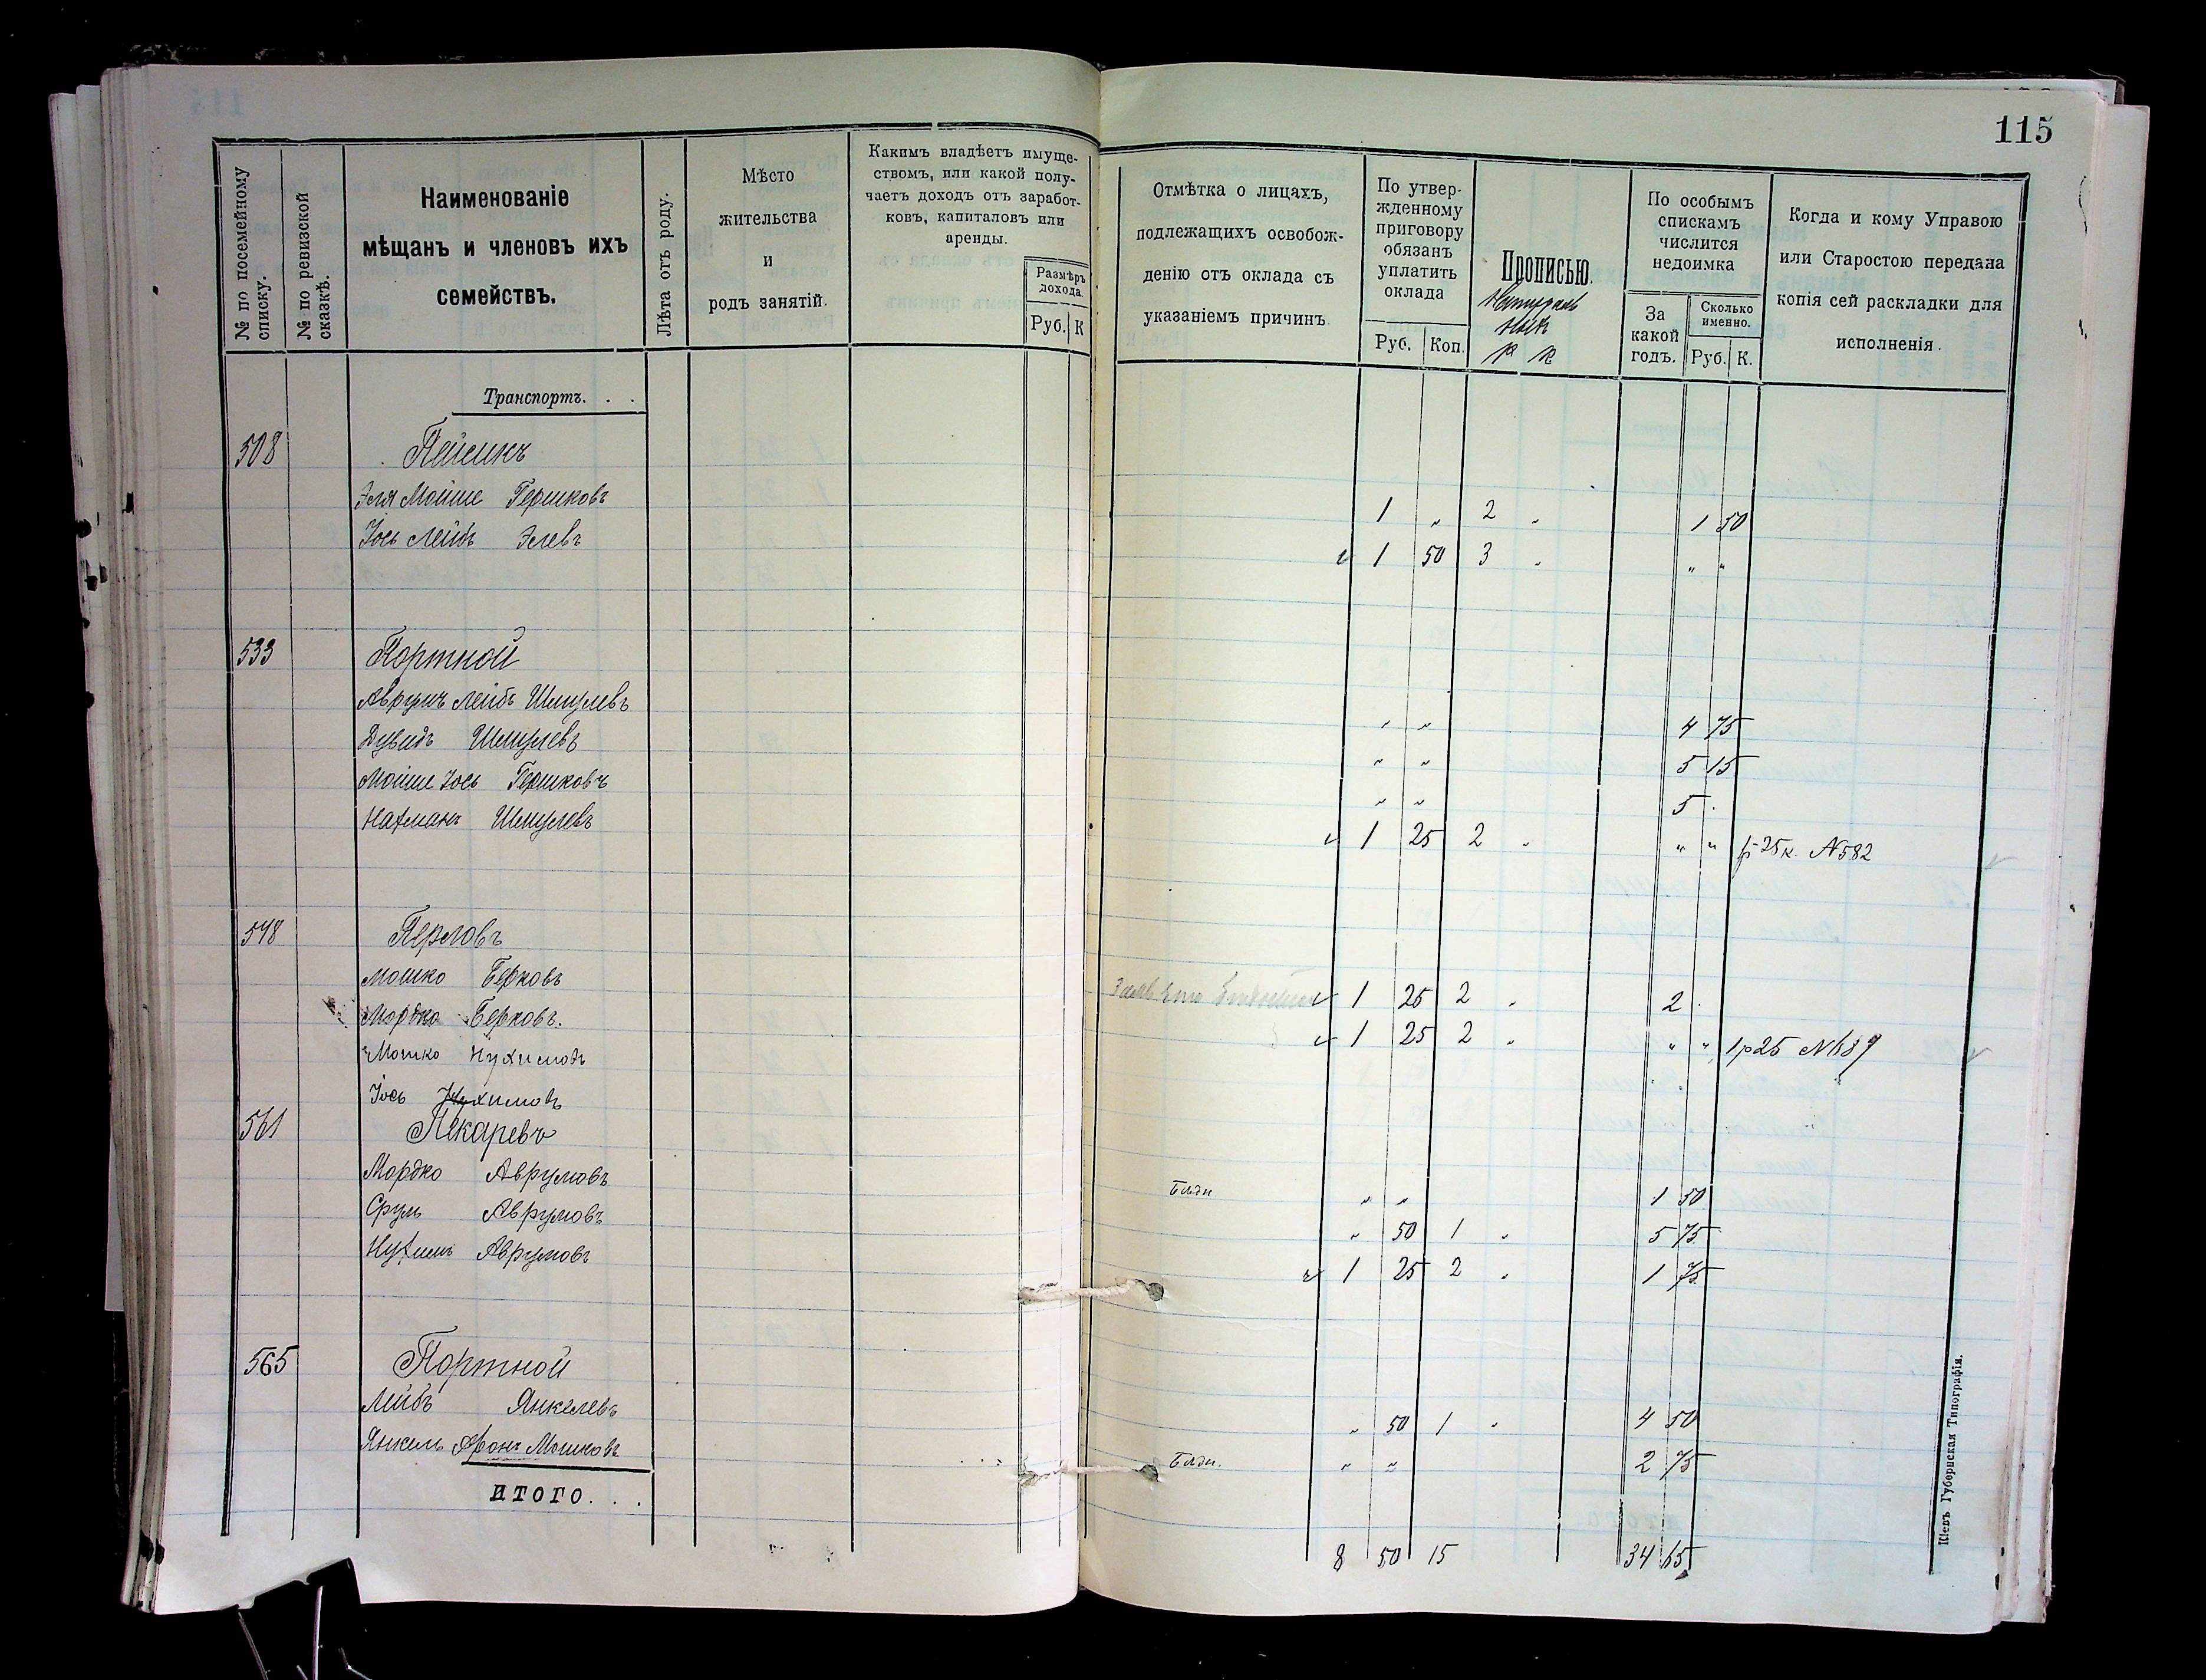 115
№ по посемейному списку.
№ по ревизской сказкѣ.
Наименованіе
мѣщанъ и членовъ ихъ
семействъ.
Лѣта отъ роду.
Мѣсто
жительства
и
родъ занятій.
Какимъ владѣетъ имуще-
ствомъ, или какой полу-
чаетъ доходъ отъ заработ-
ковъ, капиталовъ или
аренды.
Размѣръ
дохода.
Руб. К
Отмѣтка о лицахъ,
подлежащихъ освобож-
денію отъ оклада съ
указаніемъ причинъ.
По утвер-
жденному
приговору
обязанъ
уплатить
оклада
Руб. Коп.
Прописью.
р к
По особымъ
спискамъ
числится
недоимка
За
какой
годъ.
Сколько
именно.
Руб. К.
Когда и кому Управою
или Старостою передана
копія сей раскладки для
исполненія.
Транспортъ. . .
508 Пейсикъ
Эля Мойше Гершковъ 1 „ 2 „ 1 50
Іось Лейбъ Элевъ 1 50 3 „ „ „
533 Портной
Аврумъ Лейбъ Шмулевъ „ „ 4 75
Дувидъ Шмулевъ „ „ 5 15
Мойше Іось Гершковъ „ „ 5 .
Нахманъ Шмулевъ 1 25 2 „ „ „ 1р 25к. N 582
548 Перловъ
Мошко Берковъ 1 25 2 „ 2 .
Мордко Берковъ. 1 25 2 „ „ „ 1р 25 N 689
Мошко Нухимовъ
Іось Нухимовъ
561 Пекаревъ
Мордко Аврумовъ Бѣдн „ „ 1 50
Сруль Аврумовъ „ 50 1 „ 5 75
Нухимъ Аврумовъ 1 25 2 „ 1 75
565 Портной
Лейбъ Янкелевъ „ 50 1 „ 4 50
Янкель Аронъ Мошковъ Бѣдн. „ „ 2 75
ИТОГО. . .
8 50 15 34 65
Кіевъ Губернская Типографія.